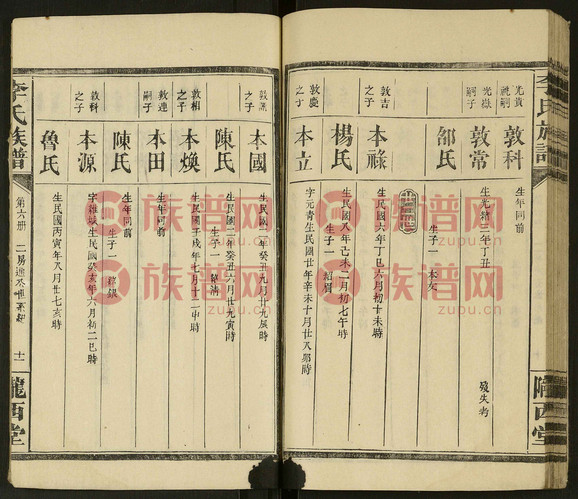 李氏族譜
隴西堂
光嶽嗣子
敦常
生光緒三年丁丑
殁失考
敦科
生年同前
邰氏
生子一
敦吉之子
本祿
生民國六年丁巳六月初十未時
楊氏
生民國
年己未二月初七午時
生子一
敦慶之子
本立
字元青生民國廿年辛未十月廿
時
之子
本國
生民國二年癸丑九月廿九辰時
陳氏
生民國二年癸丑六月廿九寅時
生子一
敦相之子
本煥
生民國
戌年七月十二申時
敦連嗣子
本田
生年同前
陳氏
生年同前
生子一
敦科之子
本源
生民國癸亥年六月初二巳時
魯氏
生民國丙寅年
月廿七亥時
李氏族譜
第六册
二房進公世系
十一
隴西堂
族谱网
zupu.cn